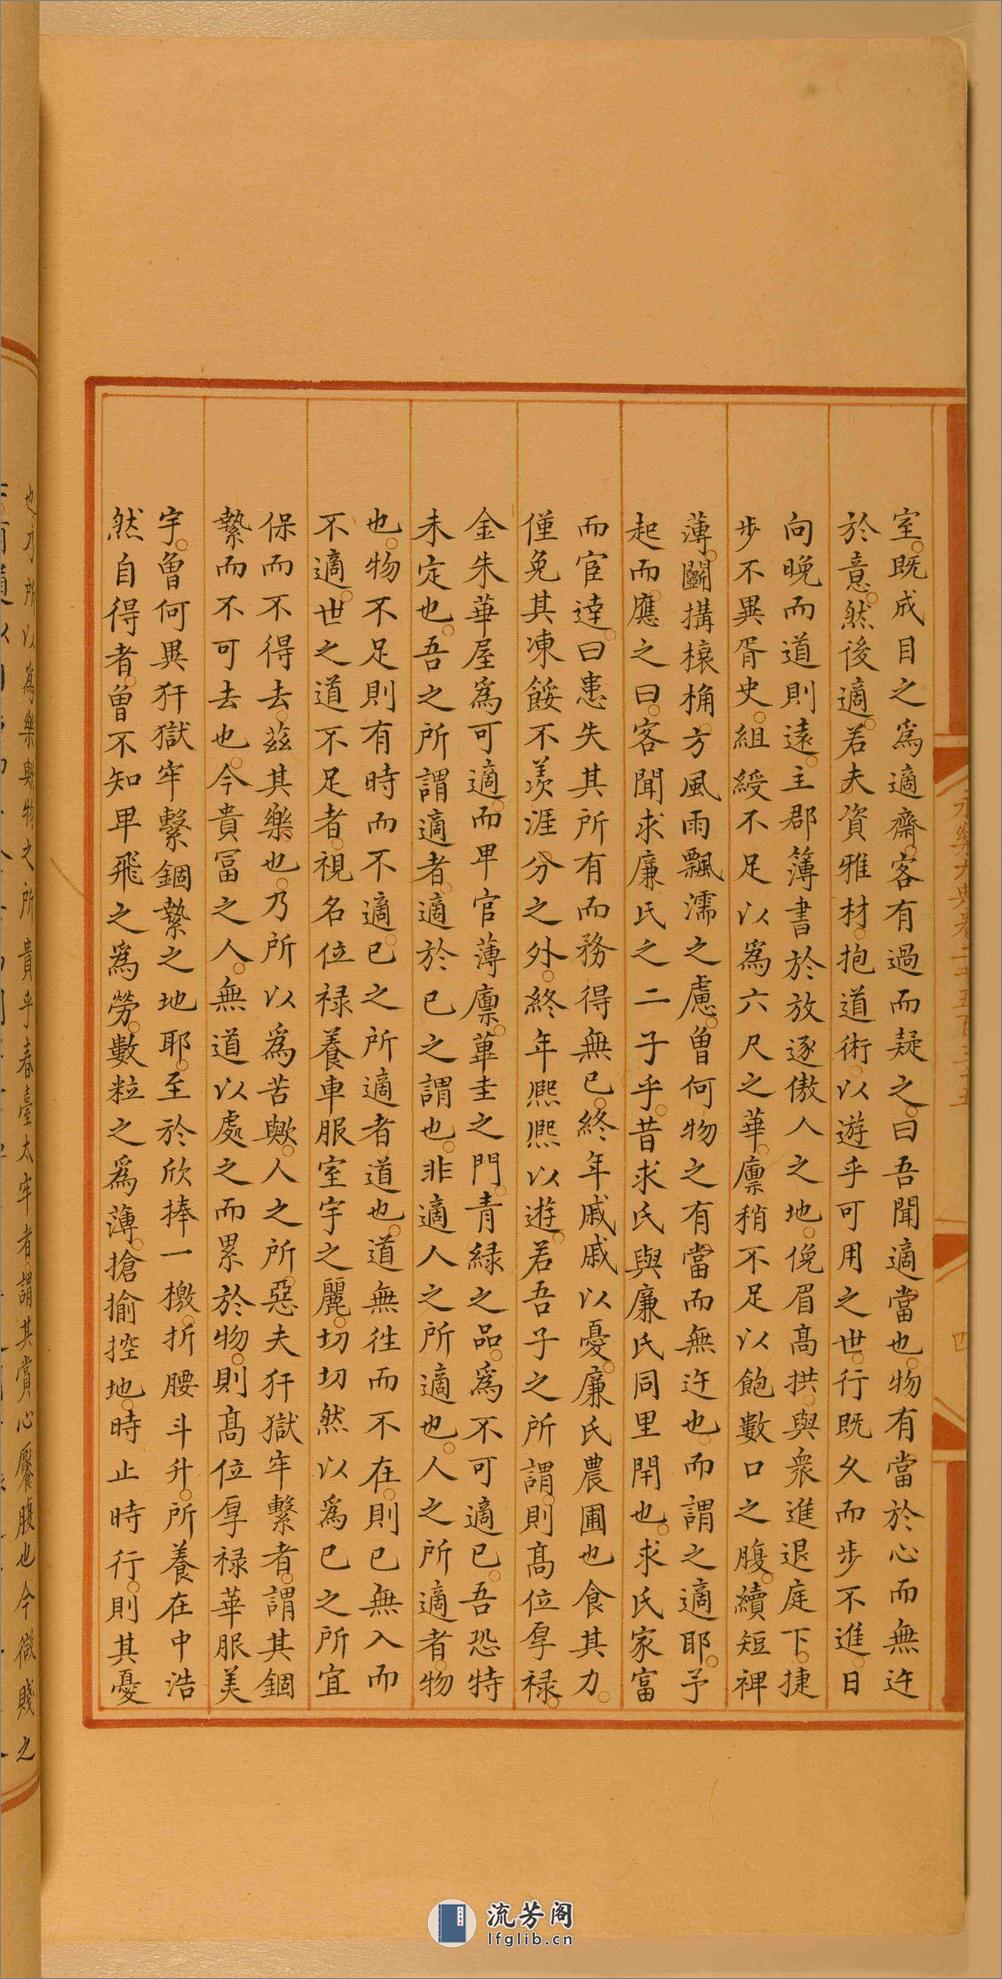 室既成目之爲適齋客有過而疑之曰吾聞適當也物有當於心而無迕
於意然後適若夫資雅材抱道術以遊乎可用之世行既久而步不進日
向晚而道則遠主郡簿書於放逐傲人之地俛眉高拱與衆進退庭下捷
步不異胥史組綬不足以爲六尺之華廪稍不足以飽數口之腹續短裨
薄闢搆榱桷方風雨飄濡之慮曽何物之有當而無迕也而謂之適耶予
起而應之曰客聞求廉氏之二子乎昔求氏與廉氏同里閈也求氏家富
而宦達曰恚失其所有而務得無已終年戚戚以憂廉氏農圃也食其力
僅免其凍餒不羡涯分之外終年熈熈以遊若吾子之所謂則髙位厚禄
金朱華屋爲可適而卑官薄廪蓽圭之門青緑之品爲不可適已吾恐特
未定也吾之所謂適者適於已之謂也非適人之所適也人之所適者物
也物不足則有時而不適已之所適者道也道無徃而不在則已無入而
不適世之道不足者視名位禄養車服室宇之麗切切然以爲已之所宜
保而不得去兹其樂也乃所以爲苦歟人之所惡夫犴獄牢繫者謂其錮
縶而不可去也今貴冨之人無道以處之而累於物則髙位厚禄華服美
宇曽何異犴獄牢繫錮縶之地耶至於欣捧一檄折腰斗升所養在中浩
然自得者曽不知卑飛之爲勞數粒之爲薄搶揄控地時止時行則其憂
也乃所以爲樂歟物之所貴乎春臺太牢者謂其賞心饜腹也今微賤之
永樂大典卷二千五百三十五
四
流芳阁
lfglib.cn